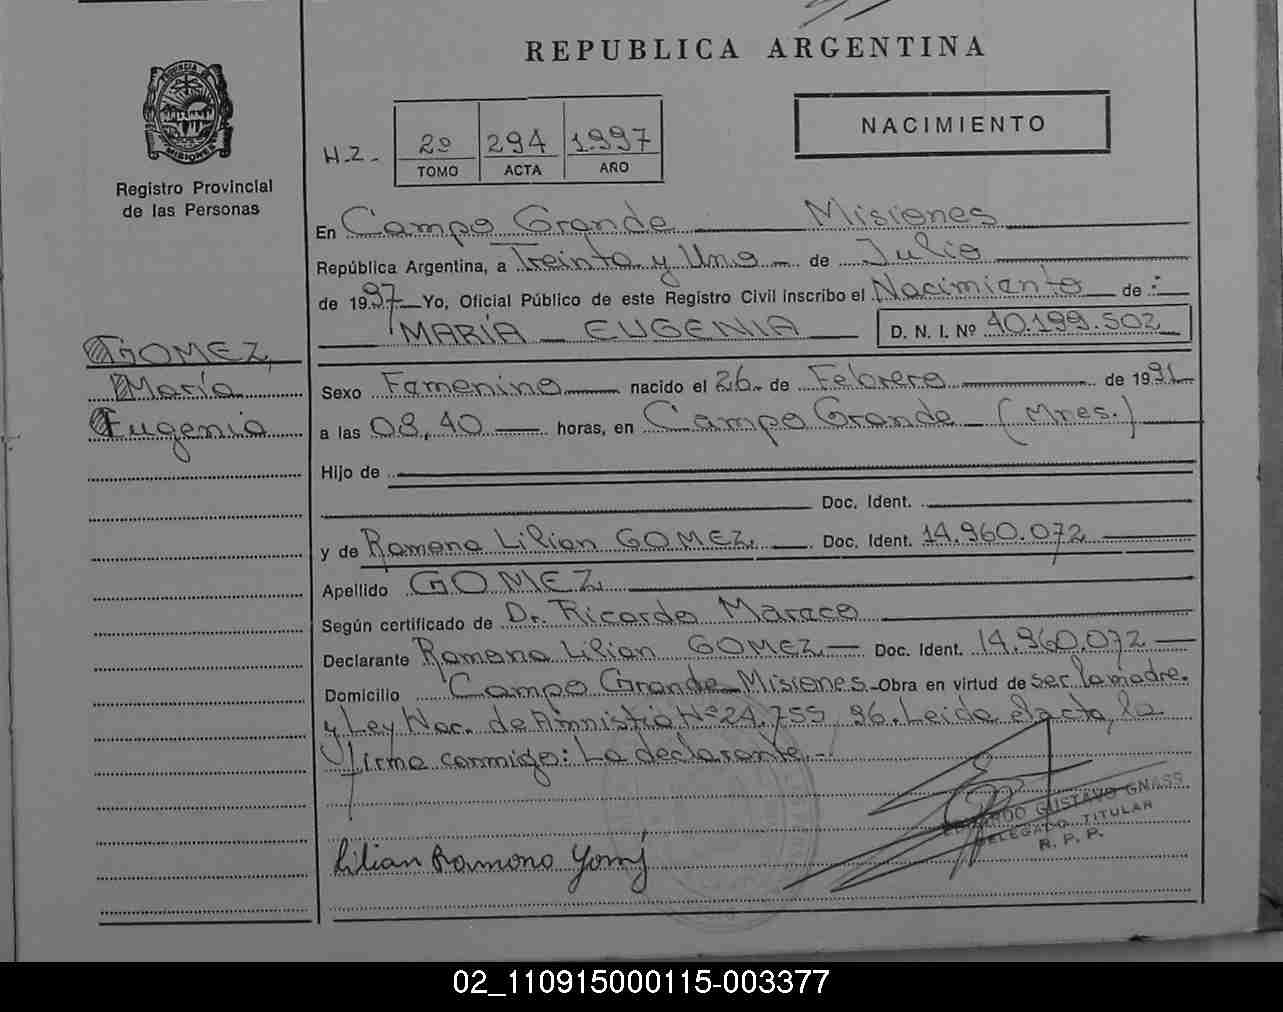 REPUBLICA ARGENTINA
PROVINCIA DE
MISIONES
Registro Provincial
de las Personas
NACIMIENTO
H.Z.-
2º 294 1.997
TOMO ACTA AÑO
En Campo Grande Misiones
República Argentina, a Treinta y Uno de Julio
de 1997 Yo, Oficial Público de este Registro Civil inscribo el Nacimiento de :
MARÍA EUGENIA D. N. I. Nº 40.199.502
GOMEZ,
María
Eugenia
Sexo Femenino nacido el 26 de Febrero de 1991
a las 08,40 horas, en Campo Grande (Mnes.)
Hijo de
Doc. Ident.
y de Ramona Lilian GOMEZ Doc. Ident. 14.960.072
Apellido GOMEZ
Según certificado de Dr. Ricardo Maraco
Declarante Ramona Lilian GOMEZ Doc. Ident. 14.960.072
Domicilio Campo Grande Misiones Obra en virtud de ser la madre.
y Ley Nac. de Amnistia Nº 24.755 96. Leida el acta, la
firma conmigo: La declarante.-
GUSTAVO GNASS
DELEGADO TITULAR
R. P. P.
Lilian Ramona
02_110915000115-003377